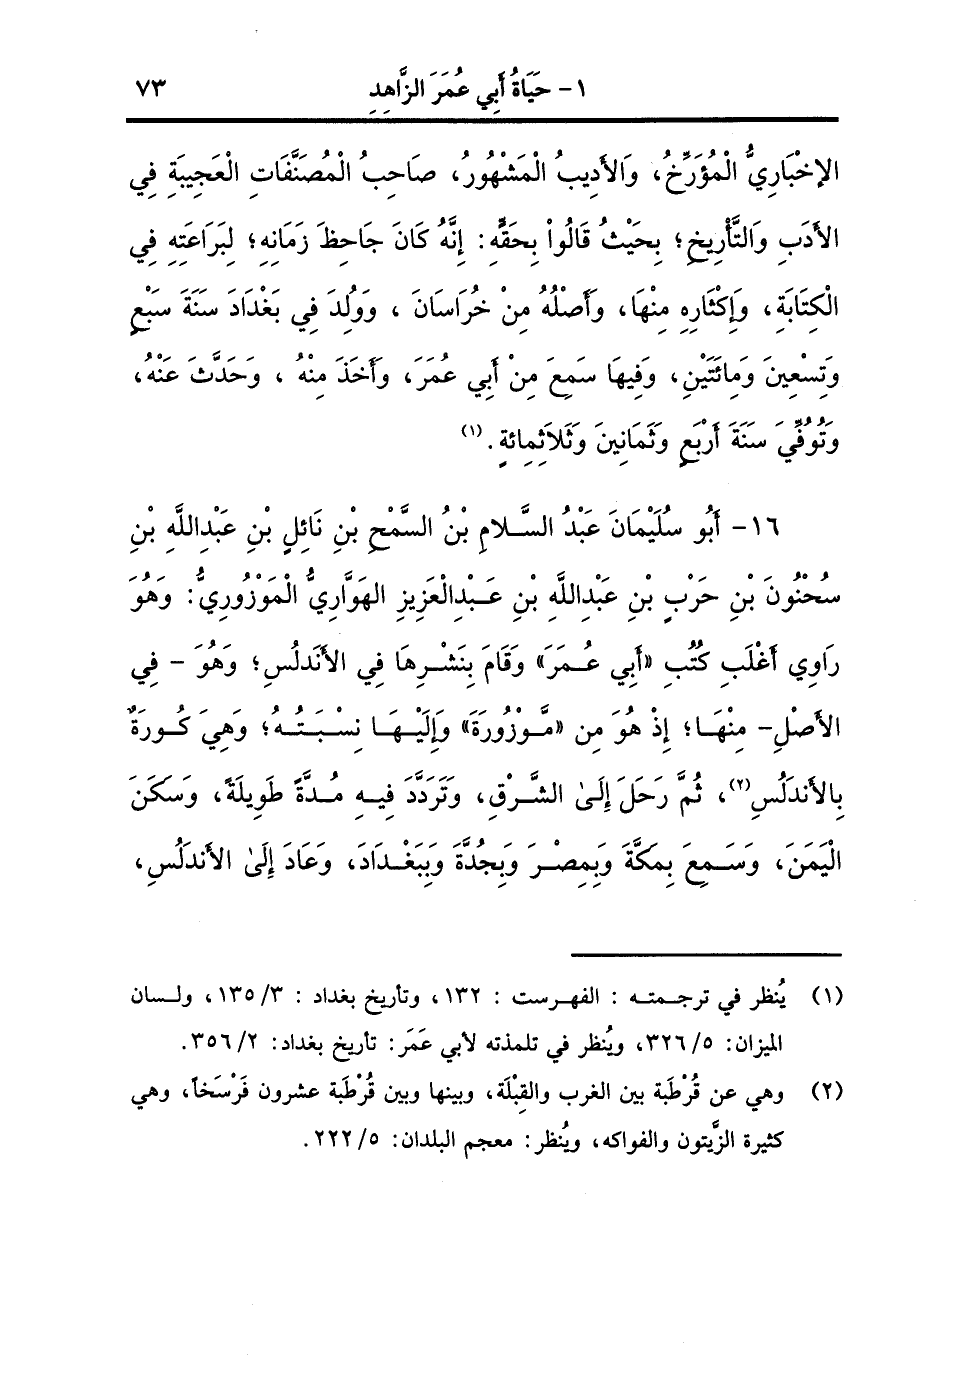 ١- حَيَاةُ أَبِي عُمَرَ الزَّاهِدِ ٧٣
الإِخْبَارِيُّ الْمُؤَرِّخُ، وَالأَدِيبُ الْمَشْهُورُ، صَاحِبُ الْمُصَنَّفَاتِ الْعَجِيبَةِ فِي
الأَدَبِ وَالتَّأْرِيخِ؛ بِحَيْثُ قَالُواْ بِحَقِّهِ: إِنَّهُ كَانَ جَاحِظَ زَمَانِهِ؛ لِبَرَاعَتِهِ فِي
الْكِتَابَةِ، وَإِكْثَارِهِ مِنْهَا، وَأَصْلُهُ مِنْ خُرَاسَانَ ، وَوُلِدَ فِي بَغْدَادَ سَنَةَ سَبْعٍ
وَتِسْعِينَ وَمِائَتَيْنِ، وَفِيهَا سَمِعَ مِنْ أَبِي عُمَرَ، وَأَخَذَ مِنْهُ ، وَحَدَّثَ عَنْهُ،
وَتُوُفِّيَ سَنَةَ أَرْبَعٍ وَثَمَانِينَ وَثَلاَثِمِائَةٍ. (١)
١٦- أَبُو سُلَيْمَانَ عَبْدُ السَّلاَمِ بْنُ السَّمْحِ بْنِ نَائِلِ بْنِ عَبْدِاللَّهِ بْنِ
سُحْنُونَ بْنِ حَرْبِ بْنِ عَبْدِاللَّهِ بْنِ عَبْدِالْعَزِيزِ الهَوَّارِيُّ الْمَوْزُورِيُّ: وَهُوَ
رَاوِي أَغْلَبِ كُتُبِ «أَبِي عُمَرَ» وَقَامَ بِنَشْرِهَا فِي الأَندَلُسِ؛ وَهُوَ - فِي
الأَصْلِ- مِنْهَا؛ إِذْ هُوَ مِن «مَّوْزُورَةَ» وَإِلَيْهَا نِسْبَتُهُ؛ وَهِيَ كُورَةٌ
بِالأَندَلُسِ(٢)، ثُمَّ رَحَلَ إِلَىٰ الشَّرْقِ، وَتَرَدَّدَ فِيهِ مُدَّةً طَوِيلَةً، وَسَكَنَ
الْيَمَنَ، وَسَمِعَ بِمَكَّةَ وَبِمِصْرَ وَبِجُدَّةَ وَبِبَغْدَادَ، وَعَادَ إِلَىٰ الأَندَلُسِ،
(١) يُنظر في ترجمته : الفهرست : ١٣٢، وتأريخ بغداد : ١٣٥/٣، ولسان
الميزان: ٣٢٦/٥، ويُنظر في تلمذته لأبي عَمَر: تأريخ بغداد: ٣٥٦/٢.
(٢) وهي عن قُرْطَبة بين الغرب والقِبْلَة، وبينها وبين قُرْطَبة عشرون فَرْسَخاً، وهي
كثيرة الزَّيتون والفواكه، ويُنظر: معجم البلدان: ٢٢٢/٥.